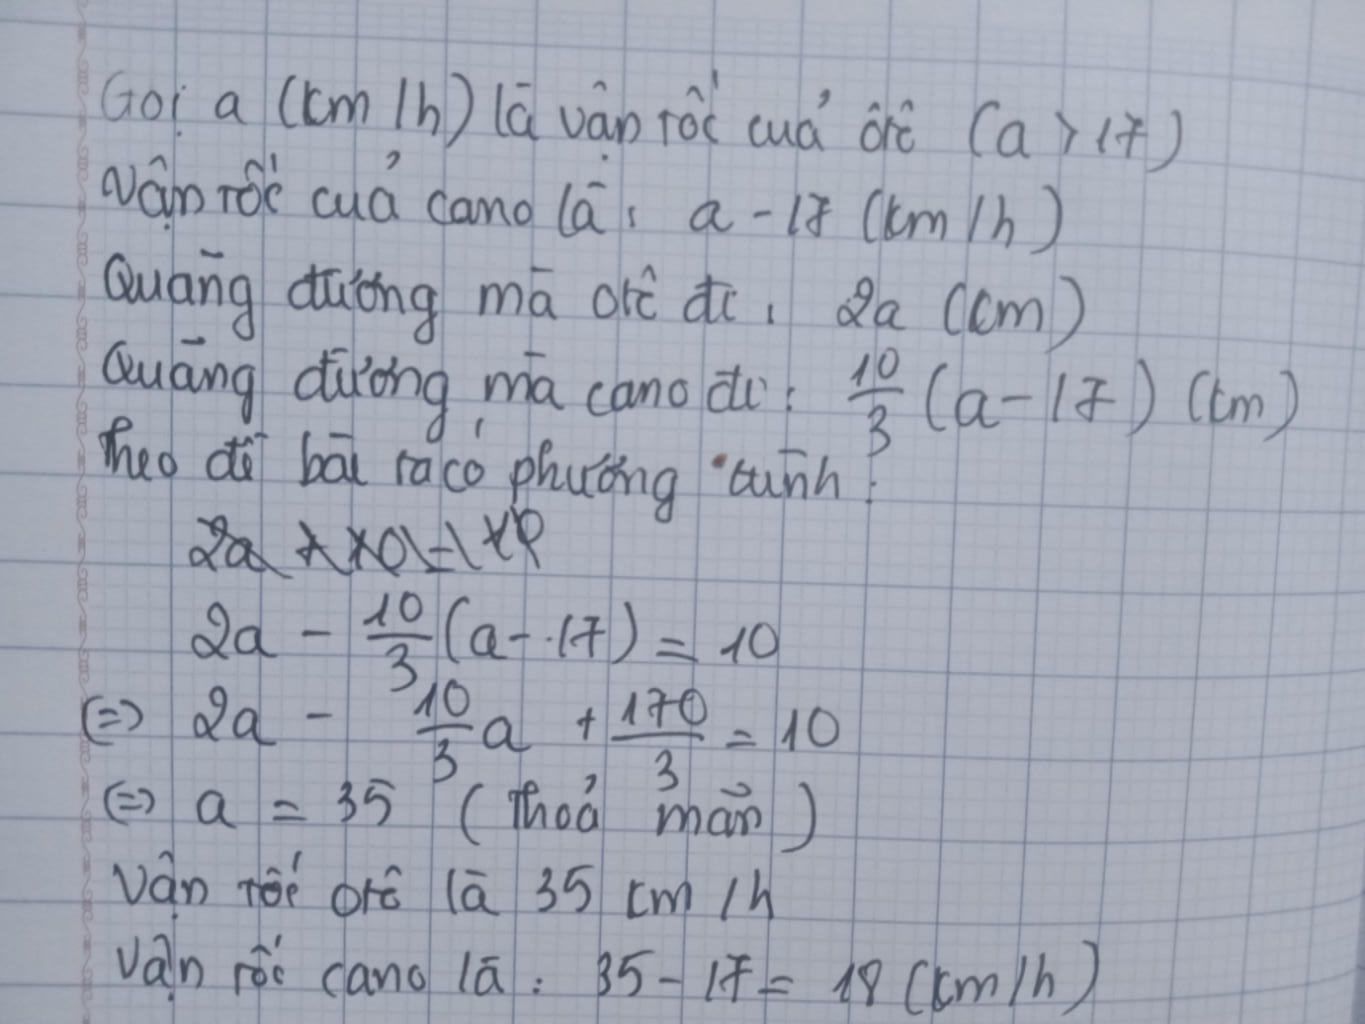 Gọi a (km/h) là vận tốc của ôtô (a > 17)
Vận tốc của cano là: a - 17 (km/h)
Quãng đường mà ôtô đi: 2a (km)
Quãng đường mà cano đi: 10/3 (a - 17) (km)
Theo đề bài ta có phương trình:
2a - 10/3 (a - 17) = 10
(=) 2a - 10/3 a + 170/3 = 10
(=) a = 35 (Thoả mãn)
Vận tốc ôtô là 35 km/h
Vận tốc cano là: 35 - 17 = 18 (km/h)